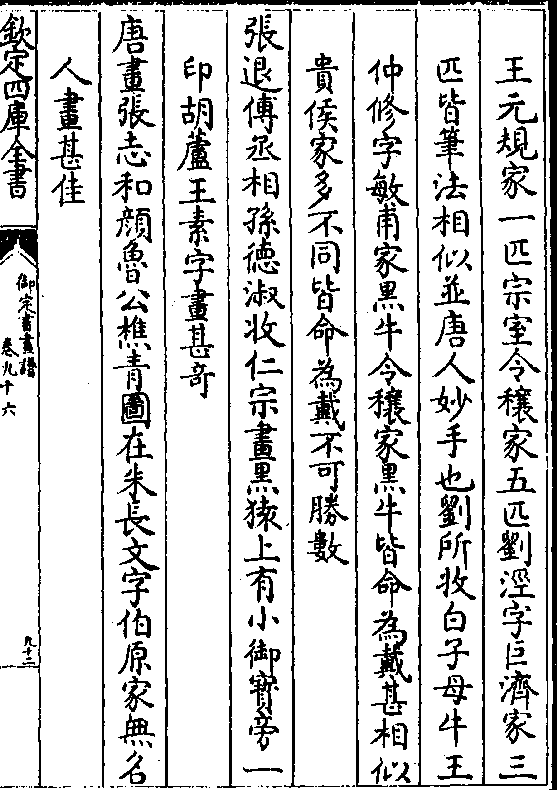 王元規家一匹宗室令穰家五匹劉涇字巨濟家三
匹皆筆法相似並唐人妙手也劉所收白子母牛王
仲修字敏甫家黑牛令穰家黑牛皆命為戴甚相似
貴侯家多不同皆命為戴不可勝數
張退傅丞相孫德淑收仁宗畫黑猿上有小御寶旁一
印胡蘆王素字畫甚奇
唐畫張志和顔魯公樵青圖在朱長文字伯原家無名
人畫甚佳
欽定四庫全書
御定書畫譜
卷九十六
九十二